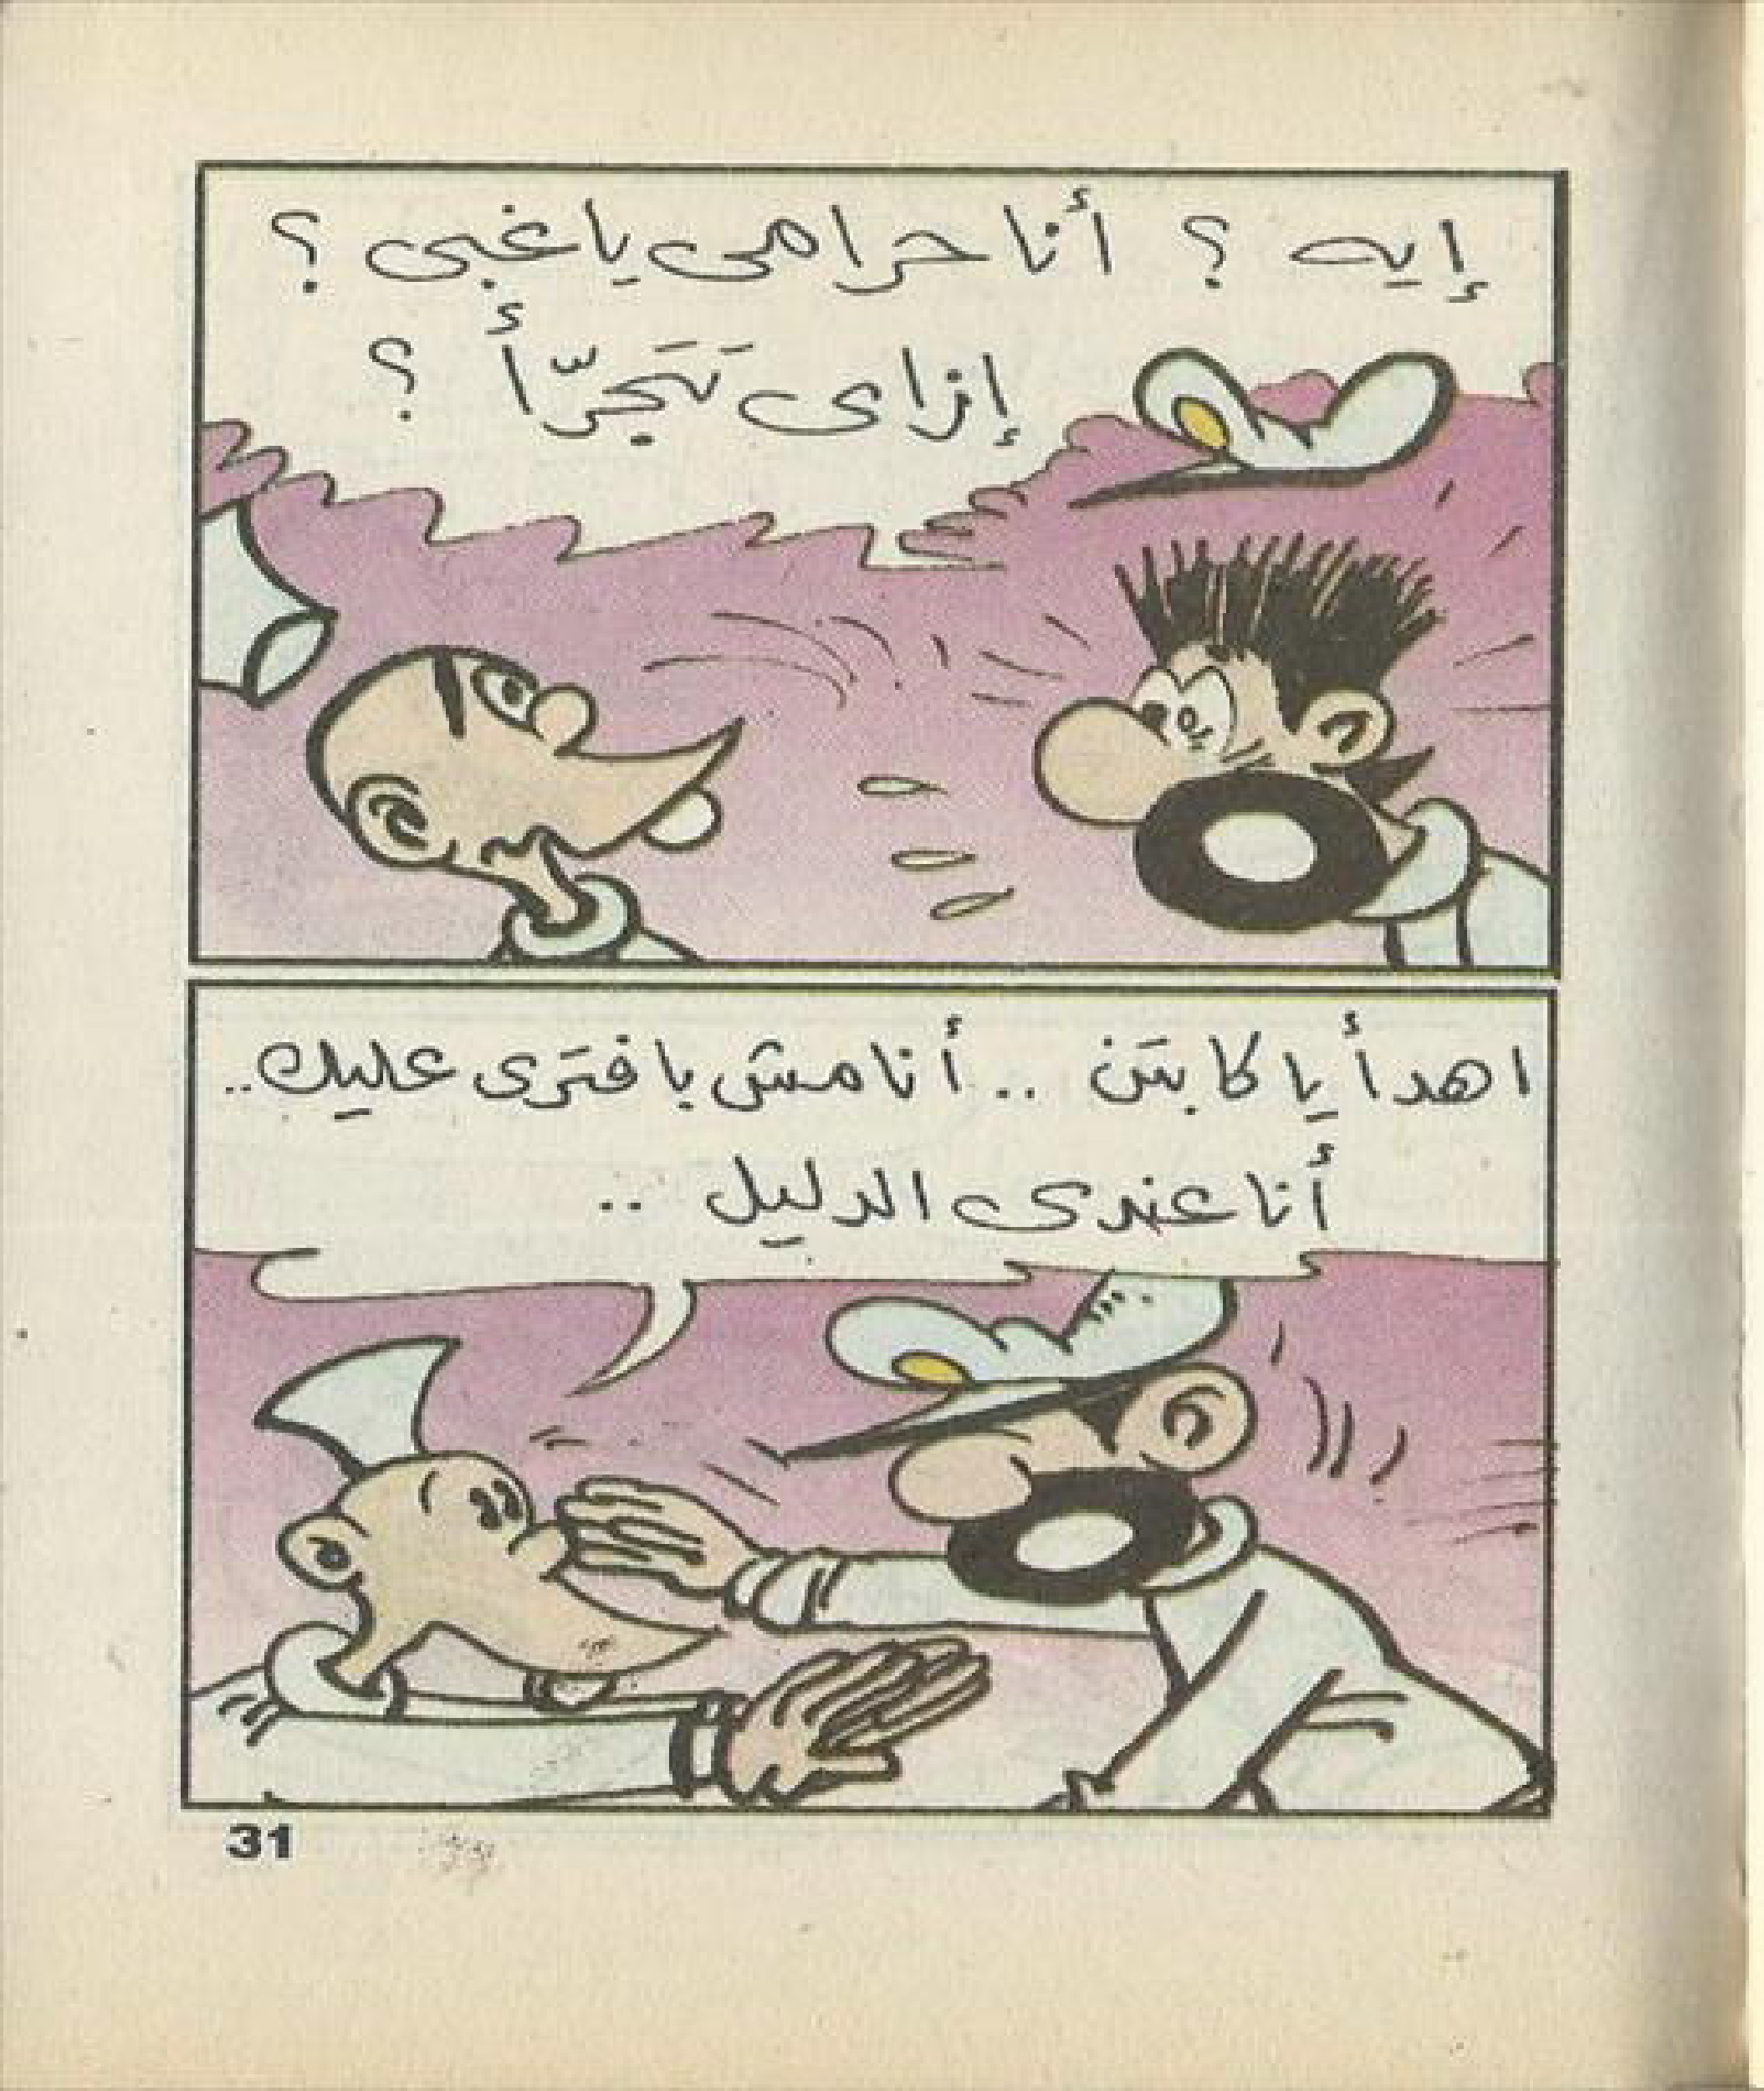 إيه ؟ أنا حرامى ياغبى ؟
إزاى تَتَجرّأ ؟
اهدأ يا كابتن .. أنا مش بافترى عليك ..
أنا عندى الدليل ..
31